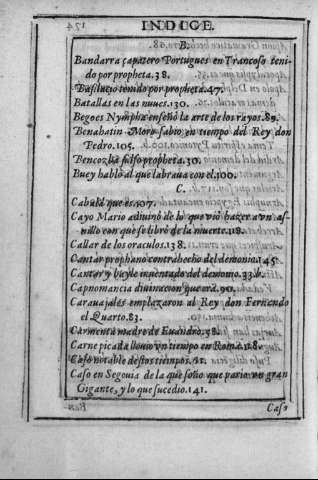 INDICE.
B.
Bandarra çapatero Portugues en Trancoso teni-
do por propheta. 38.
Basilacio tenido por propheta. 47.
Batallas en las nuues. 130.
Begoes Nympha enseñó la arte de los rayos. 89.
Benahatin Moro sabio en tiempo del Rey don
Pedro. 105.
Bencozba falso propheta. 30.
Buey habló al que labraua con el. 100.
C.
Cabala que es. 107.
Cayo Mario adiuinò de lo que viò hazer a vn as-
nillo con que se librò de la muerte. 118.
Callar de los oraculos. 138.
Cantar prophano contrahecho del demonio. 145.
Cantar y bayle inuentado del demonio. 33. b.
Capnomancia diuinacion que era. 90.
Carauajales emplazaron al Rey don Fernando
el Quarto. 83.
Carmenta madre de Euandro. 58.
Carne picada llouio vn tiempo en Roma. 128.
Caso notable destos tiempos. 61.
Caso en Segouia de la que soño que paria vn gran
Gigante, y lo que sucedio. 141.
Caso